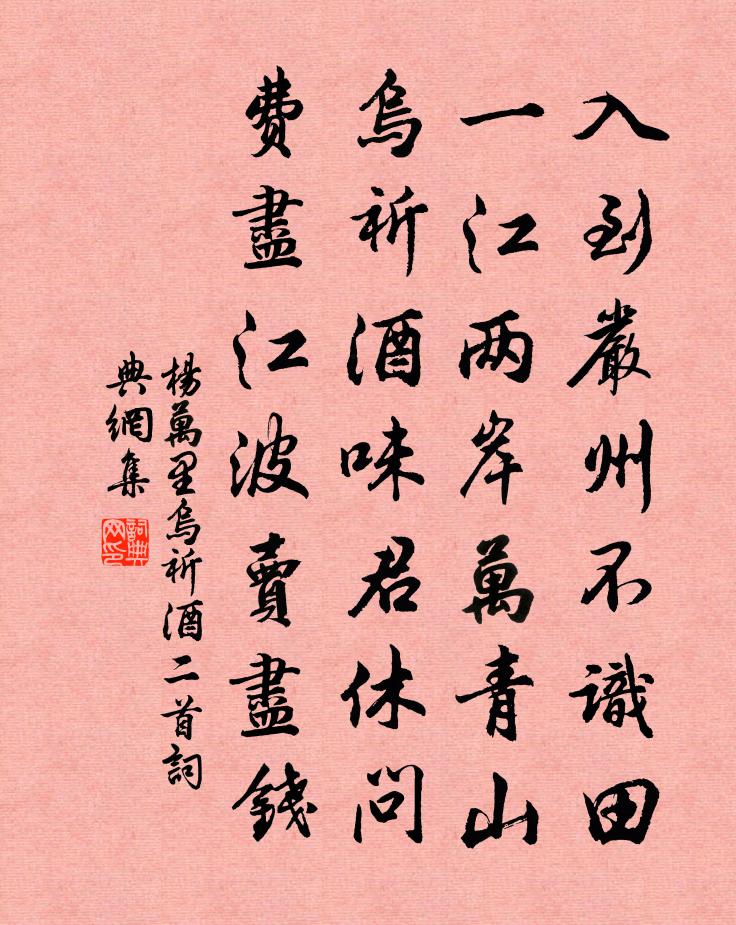 入到嚴州不識田
一江两岸萬青山
烏祈酒味君休問
費盡江波賣盡錢
楊萬里烏祈酒二首詞
典網集
詞典
网印